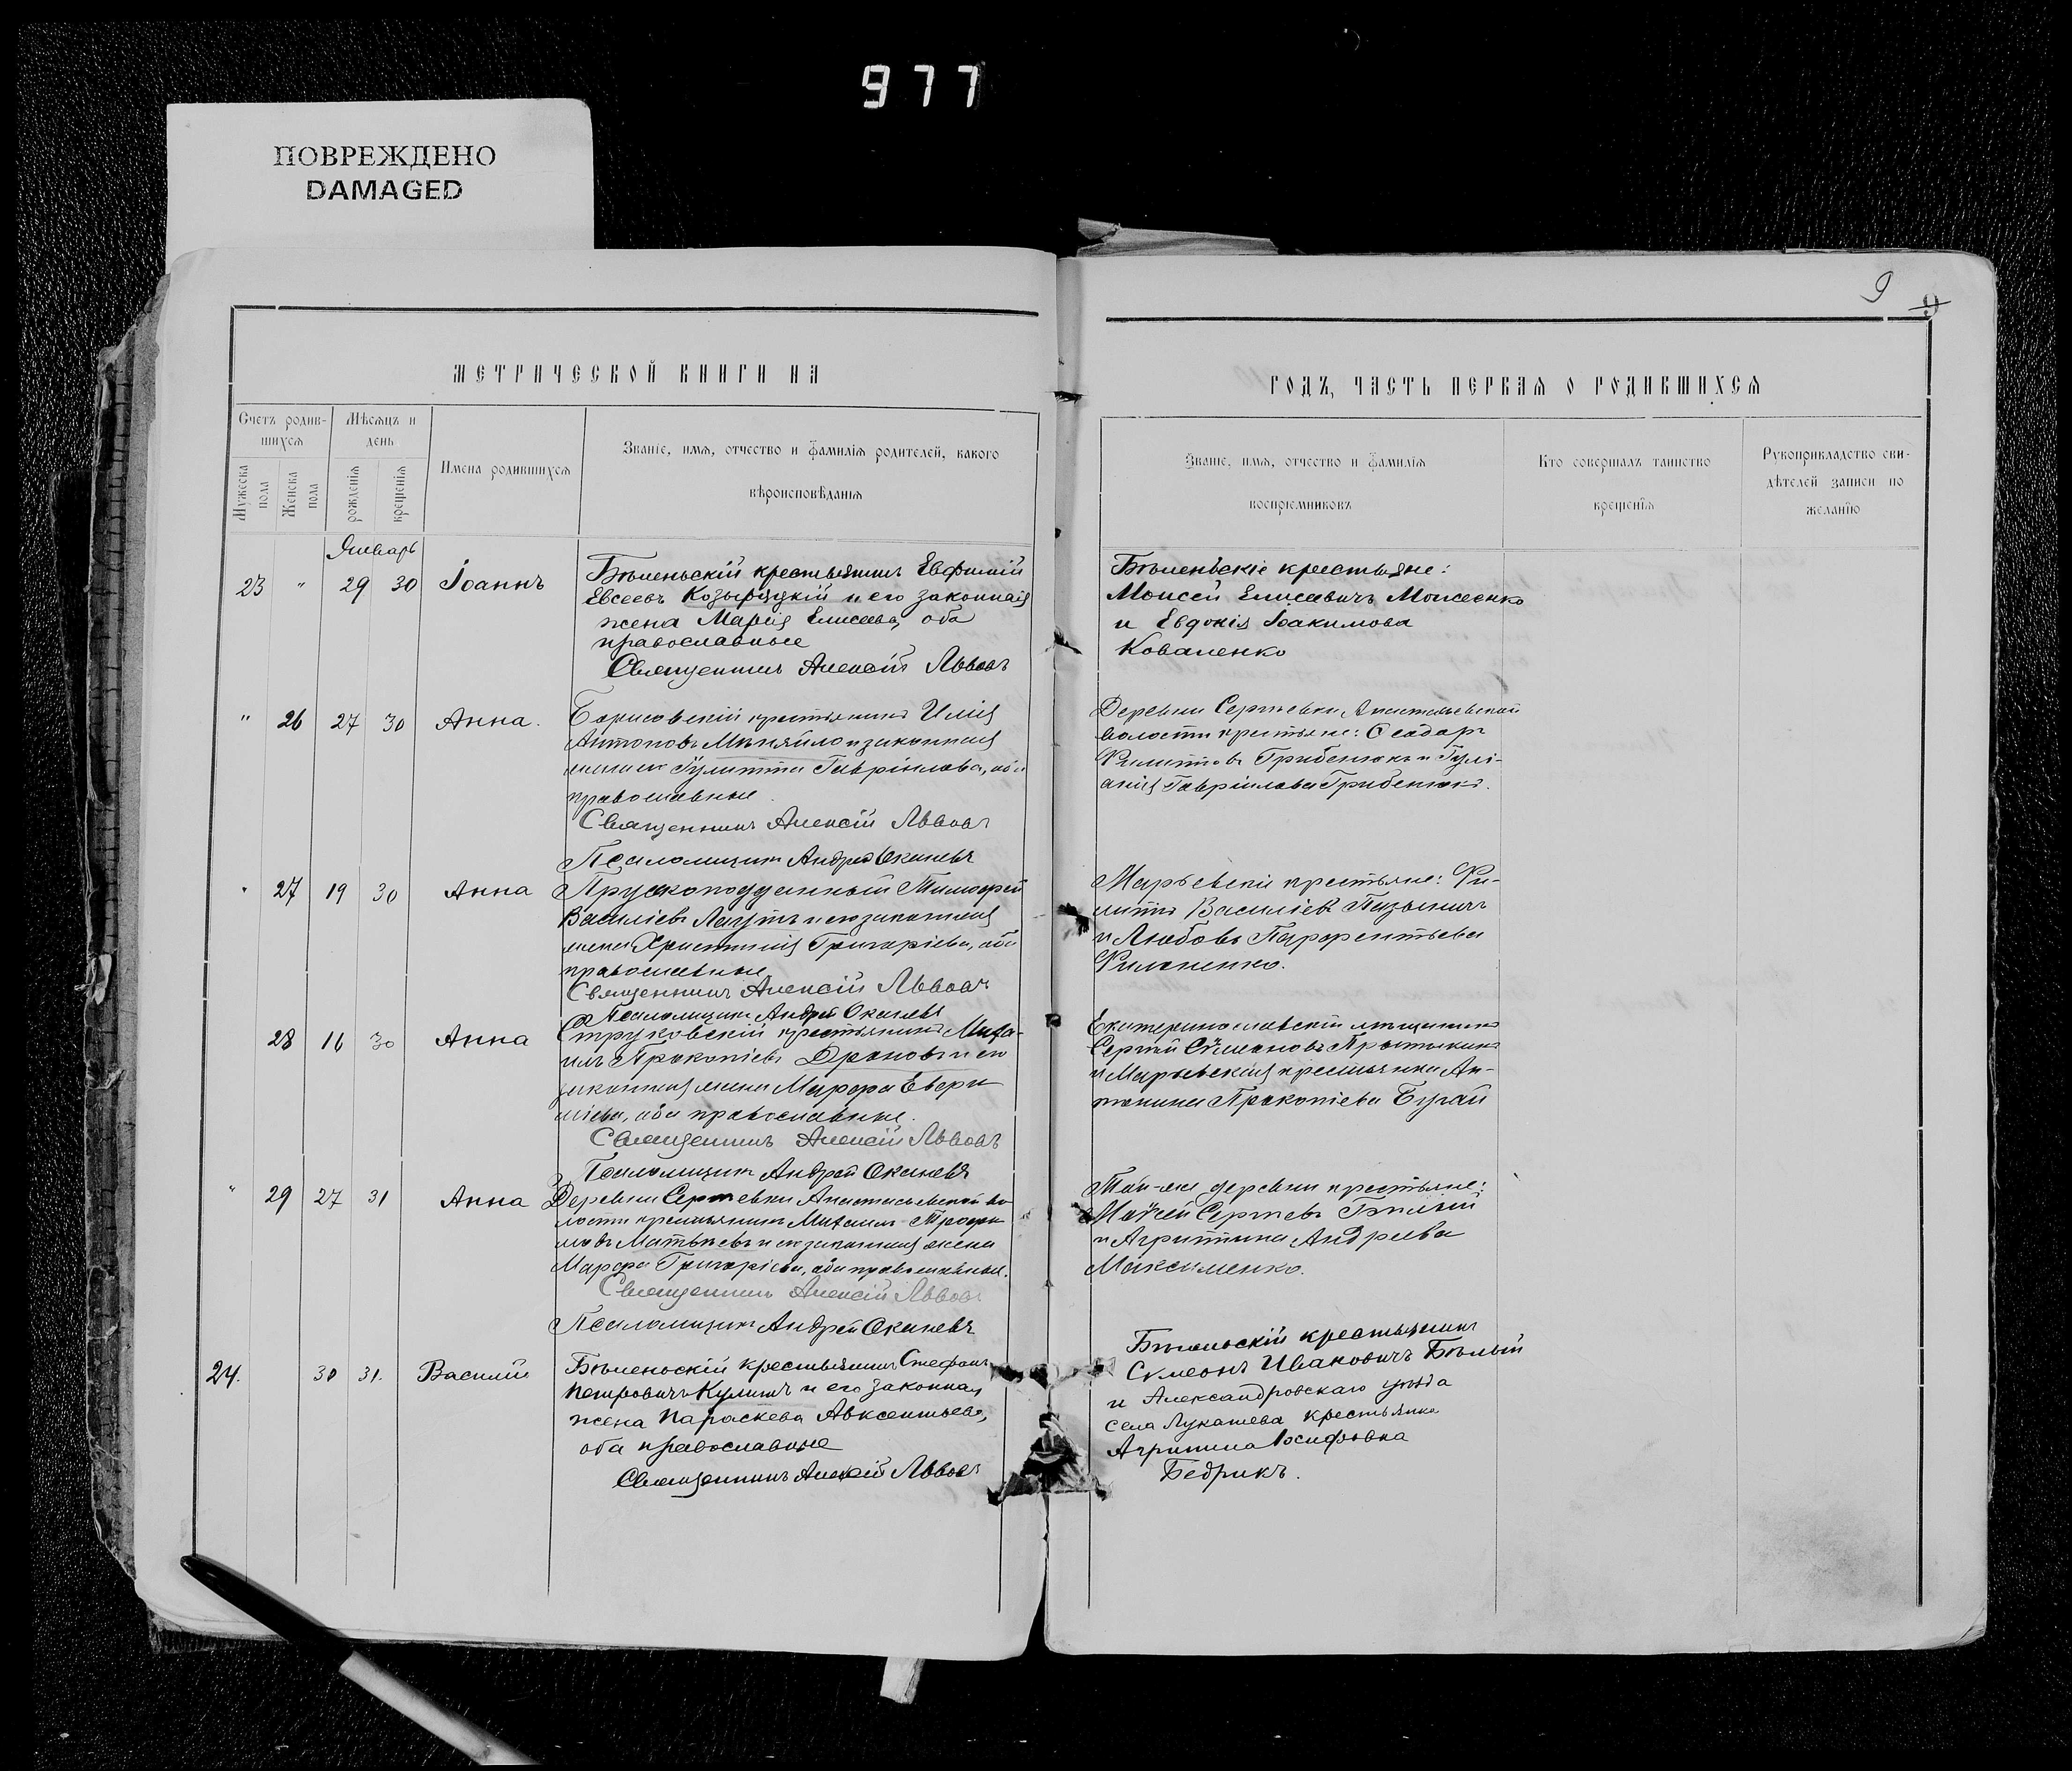 977
ПОВРЕЖДЕНО
DAMAGED
9
9
МЕТРИЧЕСКОЙ КНИГИ НА
ГОДЪ, ЧАСТЬ ПЕРВАЯ О РОДИВШИХСЯ
Счетъ родив-
шихся
Мѣсяцъ и
день
Мужеска
пола
Женска
пола
рожденія
крещенія
Имена родившихся
Званіе, имя, отчество и фамилія родителей, какого
вѣроисповѣданія
Званіе, имя, отчество и фамилія
воспріемниковъ
Кто совершалъ таинство
крещенія
Рукоприкладство сви-
дѣтелей записи по
желанію
Январь
23 " 29 30 Іоаннъ
Бѣленьскій крестьянинъ Евфимій
Евсеевъ Козырицкій и его законная
жена Марія Елисеева, оба
православные
Священникъ Алексій Львовъ
Бѣленьскіе крестьяне:
Моисей Елисевичъ Моисеенко
и Евдокія Іоакимова
Коваленко
" 26 27 30 Анна.
Борисовскій крестьянинъ Илія
Антоновъ Мѣняйло и законная
жена его Іулитта Гавріилова, оба
православные.
Священникъ Алексій Львовъ
Псаломщикъ Андрей
Деревни Сергѣевки, Анастасьевской
волости крестьяне: Ѳеодоръ
Филипповъ Грибенюкъ и Іулі-
анія Гавріилова Грибенюкъ.
" 27 19 30 Анна
Прусскоподданный Тимофей
Василіевъ и его законная
жена Христинія Григоріева, оба
православные
Священникъ Алексій Львовъ
Псаломщикъ Андрей
Марьевскіе крестьяне: Фи-
липпъ Василіевъ
и Любовь Парфентьева
Филоненко.
28 16 30 Анна
Струковскій крестьянинъ Миха-
илъ Прокопіевъ Дроновъ и его
законная жена Марфа Евфи-
міева, оба православные.
Священникъ Алексій Львовъ
Псаломщикъ Андрей
Екатеринославскій мѣщанинъ
Сергѣй Сѵмеоновъ
и Марьевская крестьянка Ан-
тонина Прокопіева Бугай
" 29 27 31 Анна
Деревни Сергѣевки Анастасьевской во-
лости крестьянинъ Михаилъ Трофи-
мовъ Матвѣевъ и его законная жена
Марфа Григоріева, оба православные.
Священникъ Алексій Львовъ
Псаломщикъ Андрей
Той-же деревни крестьяне:
Моѵсей Сергѣевъ Бѣлый
и Агриппина Андреева
Максименко.
24. 30 31. Василій
Бѣленьскій крестьянинъ Стефанъ
Петровичъ Кулишъ и его законная
жена Параскева Авксентьева,
оба православные
Священникъ Алексій Львовъ
Бѣленьскій крестьянинъ
Сѵмеонъ Ивановичъ Бѣлый
и Александровскаго уѣзда
села Лукашева крестьянка
Агриппина Іосифовна
Бедрикъ.